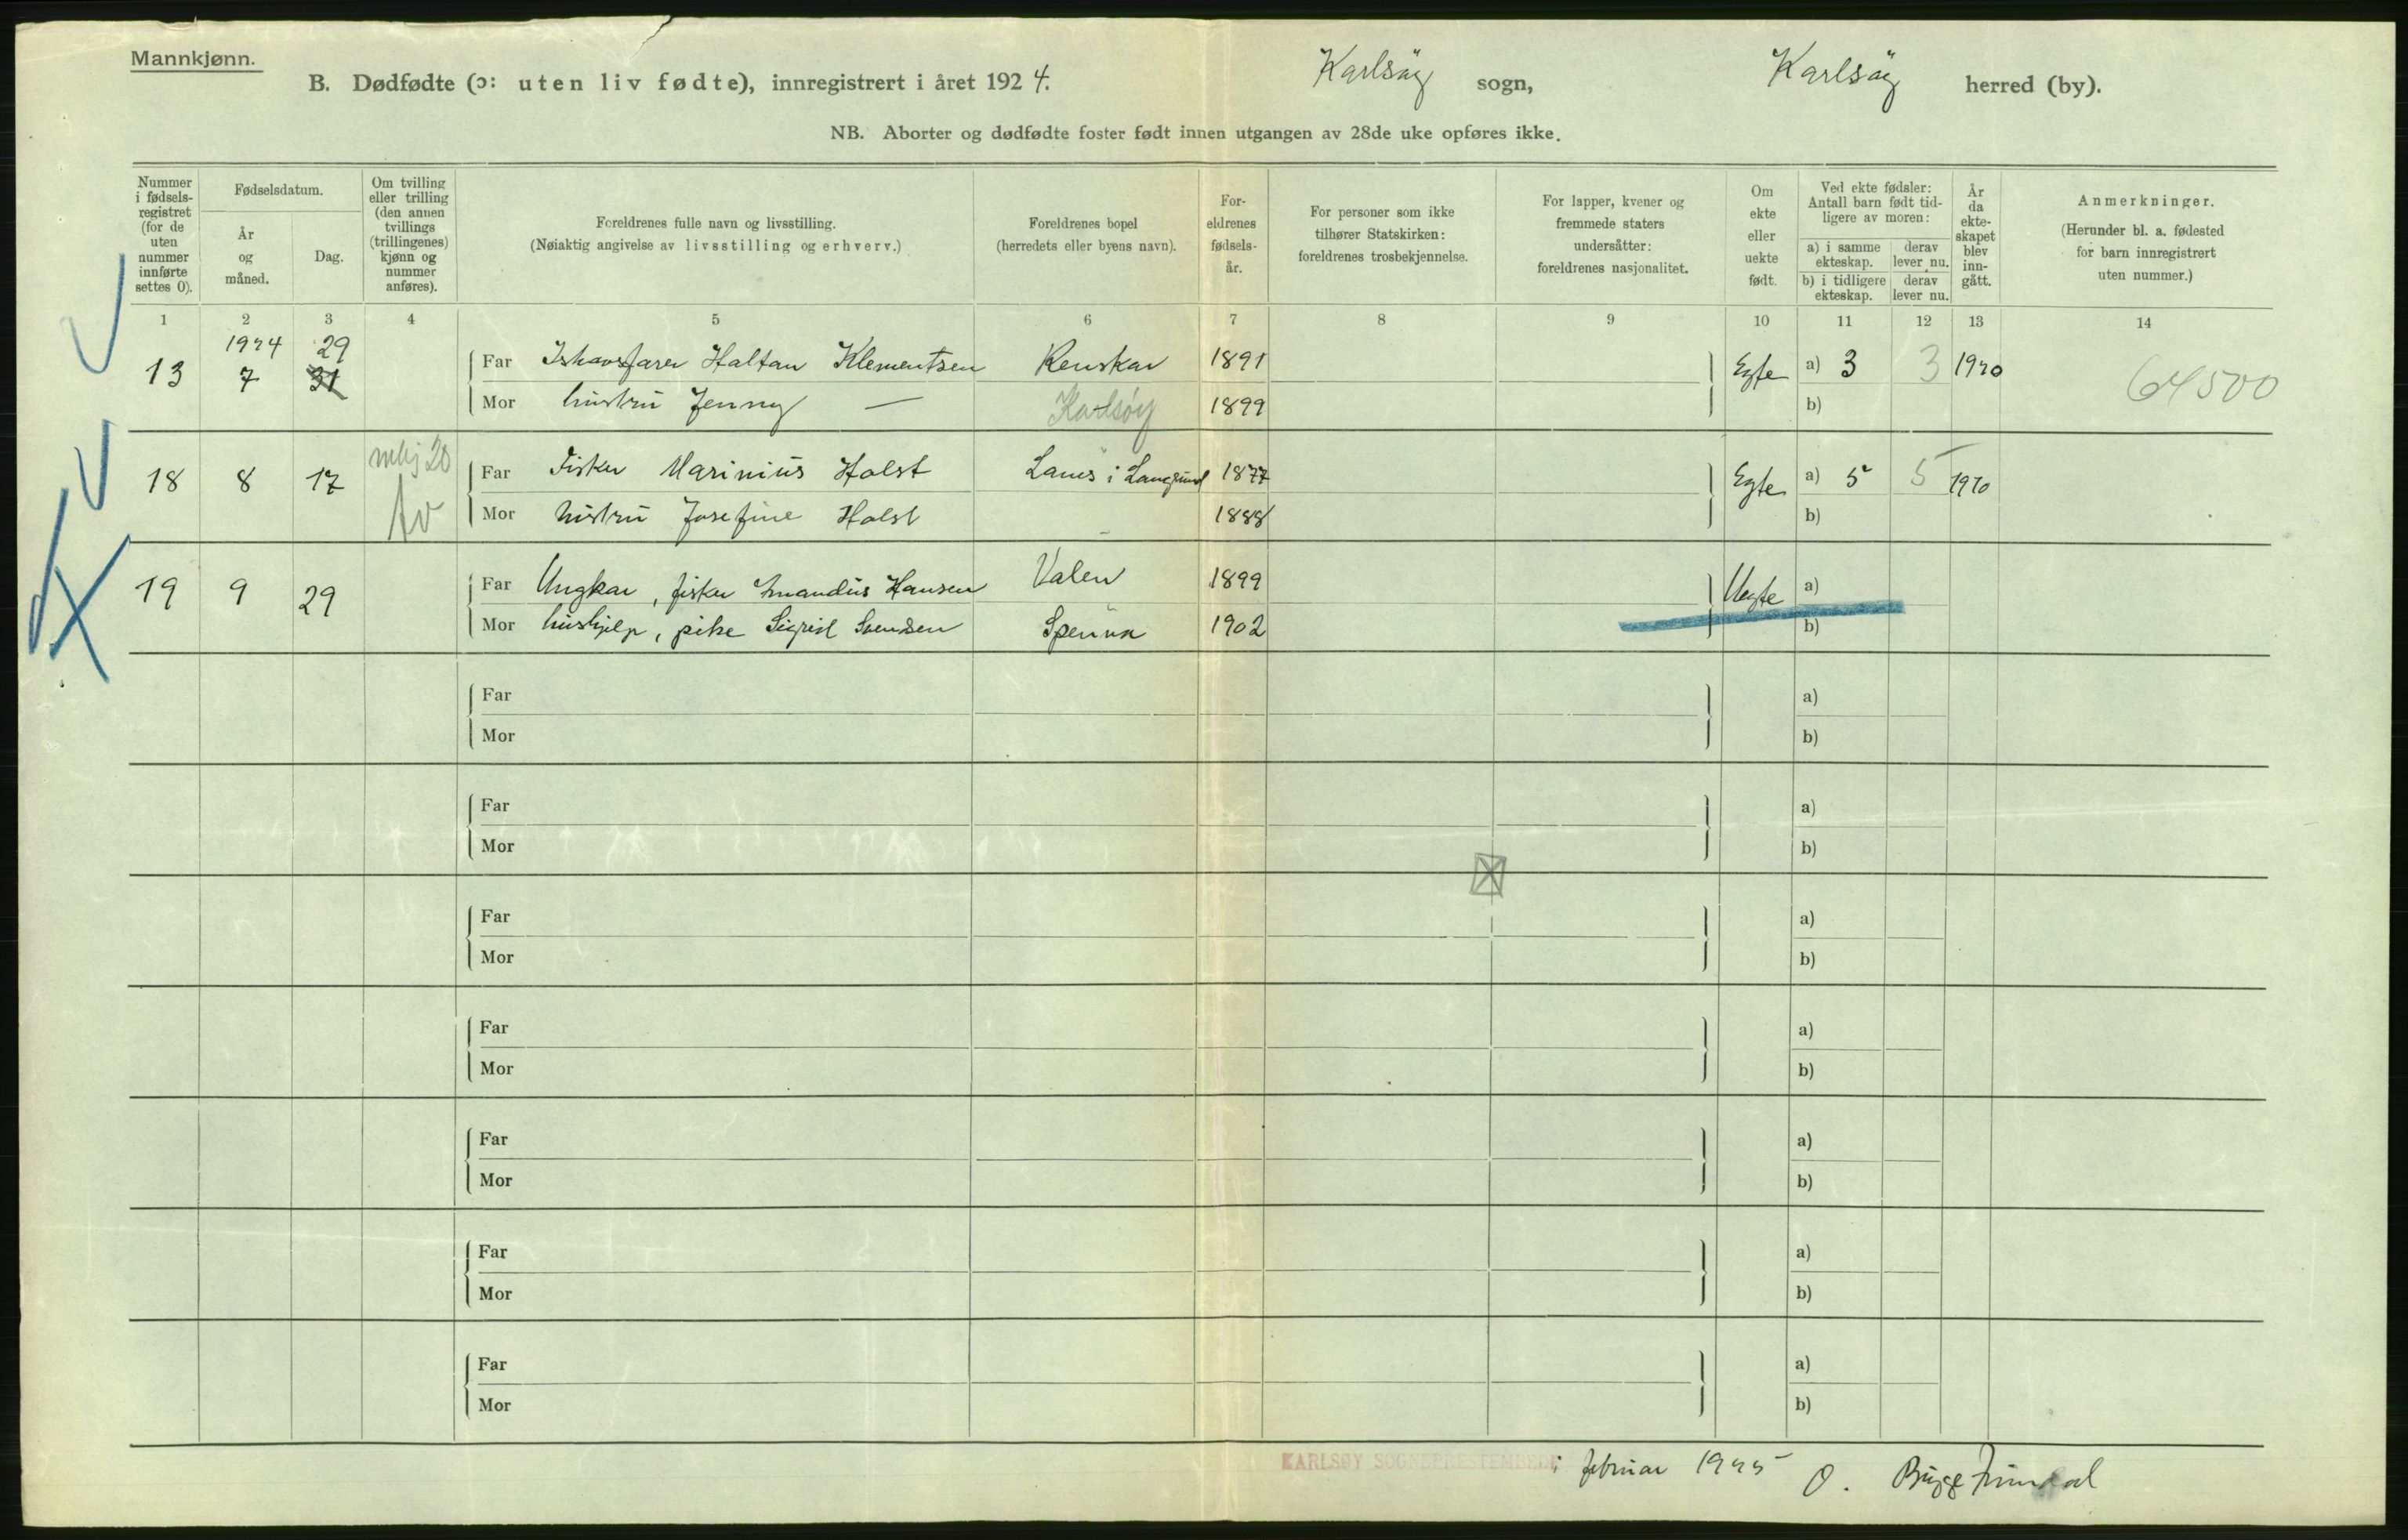 Mannkjønn.
B. Dødfødte (ɔ: uten liv fødte), innregistrert i året 1924. Karlsöy sogn, Karlsöy herred (by).
NB. Aborter og dødfødte foster født innen utgangen av 28de uke opføres ikke.
Nummer i fødsels-registret (for de uten nummer innførte settes 0).
Fødselsdatum.
År og måned.
Dag.
Om tvilling eller trilling (den annen tvillings (trillingenes) kjønn og nummer anføres).
Foreldrenes fulle navn og livsstilling.
(Nøiaktig angivelse av livsstilling og erhverv.)
Foreldrenes bopel
(herredets eller byens navn).
For-eldrenes fødsels-år.
For personer som ikke tilhører Statskirken: foreldrenes trosbekjennelse.
For lapper, kvener og fremmede staters undersåtter: foreldrenes nasjonalitet.
Om ekte eller uekte født.
Ved ekte fødsler: Antall barn født tid-ligere av moren:
a) i samme ekteskap. derav lever nu.
b) i tidligere ekteskap. derav lever nu.
År da ekte-skapet blev inn-gått.
Anmerkninger.
(Herunder bl. a. fødested for barn innregistrert uten nummer.)
1 2 3 4 5 6 7 8 9 10 11 12 13 14
1924 29
13 7 31 Far Ishavsfarer Halfan Klementsen Renskar 1891 Egte a) 3 3 1920 64500
Mor hustru Jenny — Karlsøy 1899 b)
18 8 17 Far Fisker Marinius Holst 1877 Egte a) 5 5 1910
Mor hustru Josefine Holst 1888 b)
19 9 29 Far Ungkar, fisker Hansen Valen 1899 Uegte a)
Mor hushjelp, pike Sigrid Svendsen 1902 b)
Far a)
Mor b)
Far a)
Mor b)
Far a)
Mor b)
Far a)
Mor b)
Far a)
Mor b)
Far a)
Mor b)
Far a)
Mor b)
KARLSØY SOGNEPRESTEMBEDE i februar 1925 O. Bugge